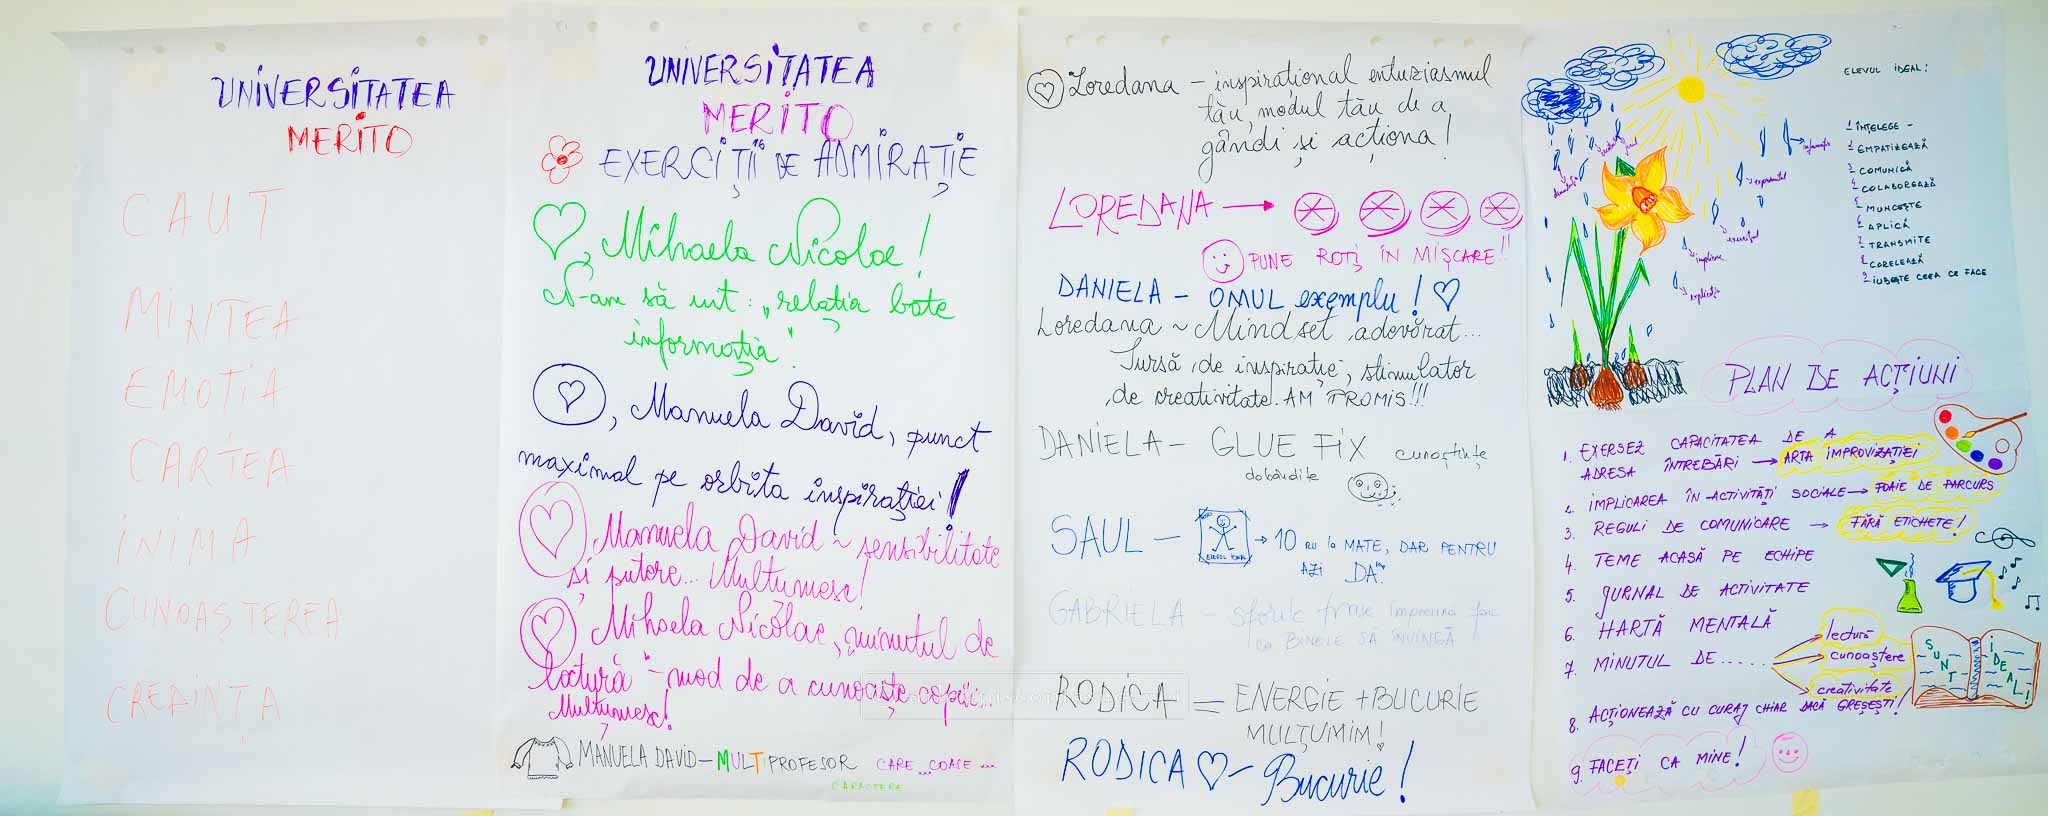 UNIVERSITATEA
MERITO
CAUT
MINTEA
EMOTIA
CARTEA
INIMA
CUNOAȘTEREA
CREDINȚA
UNIVERSITATEA
MERITO
EXERCIȚII DE ADMIRAȚIE
, Mihaela Nicolae!
N-am să uit: „relația bate
informația".
, Manuela David, punct
maximal pe orbita inspirației!
Manuela David ~ sensibilitate
și putere... Mulțumesc!
Mihaela Nicolae, „minutul de
lectură" - mod de a cunoaște copiii...
Mulțumesc!
MANUELA DAVID - MULTIPROFESOR CARE...COASE...
CARACTERE
Loredana - inspirațional entuziasmul
tău, modul tău de a
gândi și acționa!
LOREDANA →
PUNE ROȚI ÎN MIȘCARE!!
DANIELA - OMUL exemplu!
Loredana ~ Mindset adevărat...
Sursă de inspirație, stimulator
de creativitate. AM PROMIS!!!
DANIELA - GLUE FIX cunoștințe
dobândite
SAUL - → 10 nu la MATE, DAR PENTRU
AZI DA"
GABRIELA - sforile trase împreună fac
ca BINELE SĂ ÎNVINGĂ
RODICA = ENERGIE + BUCURIE
MULȚUMIM!
RODICA - Bucurie!
ELEVUL IDEAL:
1 ÎNȚELEGE -
2 EMPATIZEAZĂ
3 COMUNICĂ
4 COLABOREAZĂ
5 MUNCEȘTE
6 APLICĂ
7 TRANSMITE
8 CORELEAZĂ
9 IUBEȘTE CEEA CE FACE
implicare
explicația
exercițiul
experimentul
PLAN DE ACȚIUNI
1. EXERSEZ CAPACITATEA DE A
ADRESA ÎNTREBĂRI → ARTA IMPROVIZAȚIEI
2. IMPLICAREA ÎN ACTIVITĂȚI SOCIALE → FOAIE DE PARCURS
3. REGULI DE COMUNICARE → FĂRĂ ETICHETE!
4. TEME ACASĂ PE ECHIPE
5. JURNAL DE ACTIVITATE
6. HARTĂ MENTALĂ
7. MINUTUL DE......
lectură
cunoaștere
creativitate
SUNT IDEAL!
8. ACȚIONEAZĂ CU CURAJ CHIAR DACĂ GREȘEȘTI!
9. FACEȚI CA MINE!